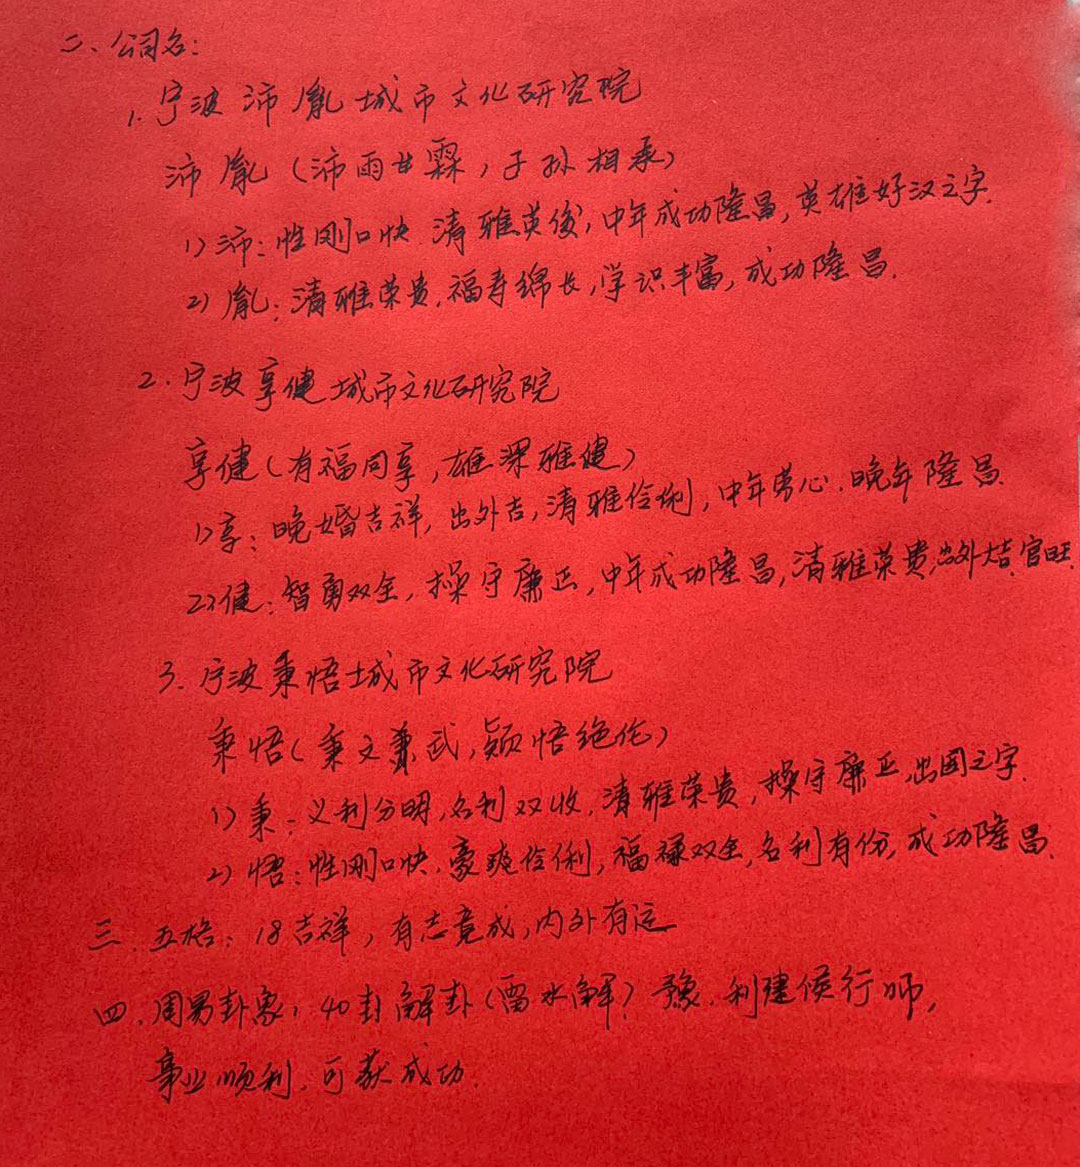 二、公司名:
1. 宁波沛胤城市文化研究院
沛胤(沛雨甘霖,子孙相承)
1) 沛:性刚口快.清雅英俊,中年成功隆昌,英雄好汉之字.
2) 胤:清雅荣贵.福寿绵长,学识丰富,成功隆昌.
2. 宁波享健城市文化研究院
享健(有福同享,雄深雅健)
1) 享:晚婚吉祥,出外吉,清雅伶俐,中年劳心.晚年隆昌
2) 健:智勇双全,操守廉正,中年成功隆昌,清雅荣贵,出外大吉.官旺
3. 宁波秉悟城市文化研究院
秉悟(秉文兼武,颖悟绝伦)
1) 秉:义利分明,名利双收.清雅荣贵,操守廉正,出国之字.
2) 悟:性刚口快.豪爽伶俐,福禄双全,名利有份,成功隆昌.
三.五格:18吉祥,有志竟成,内外有运
四.周易卦象:40封解卦(雷水解)豫.利建侯行师,
事业顺利.可获成功.